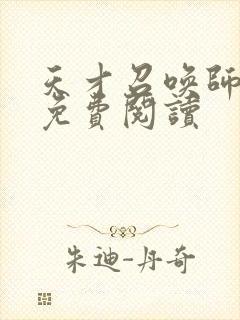 天才召唤師
免費閱讀
朱迪-丹奇